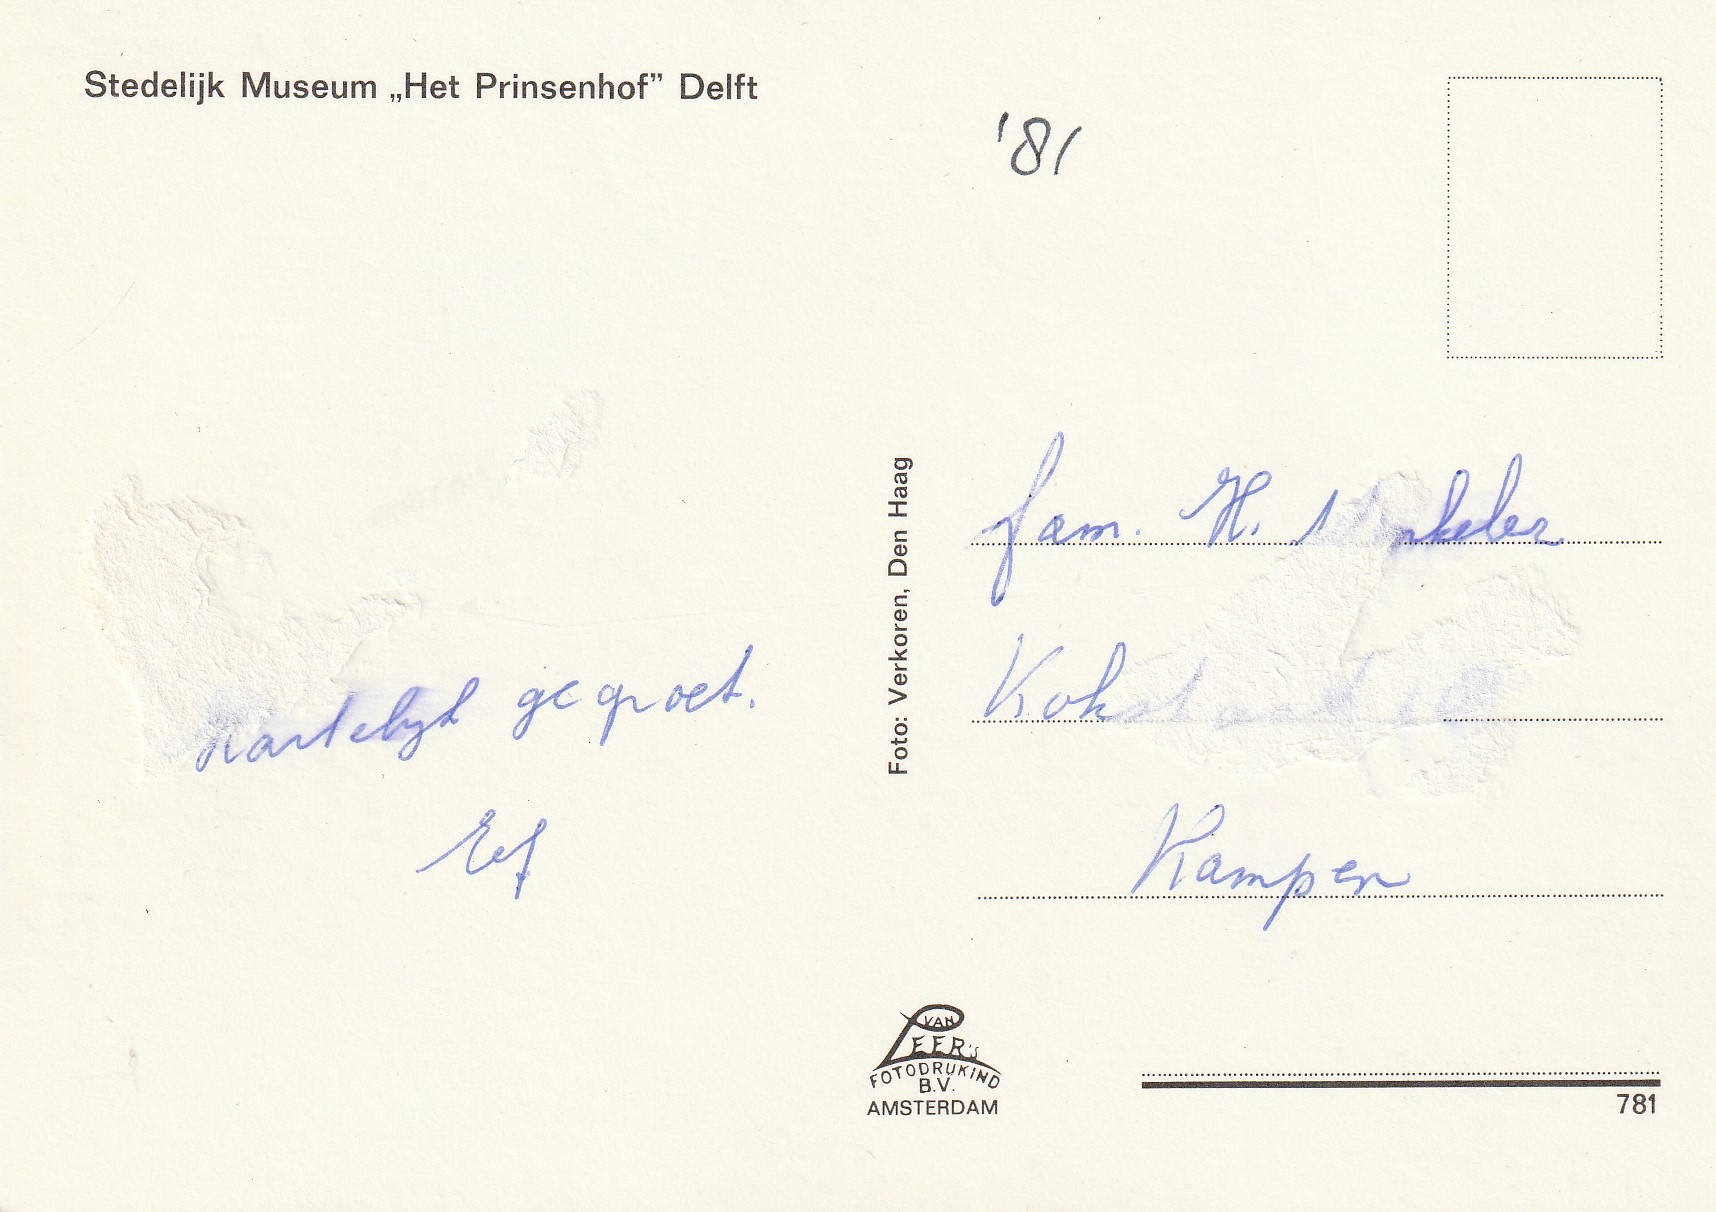 Stedelijk Museum „Het Prinsenhof” Delft
'81
fam. H.
Kampen
hartelijk gegroet.
Eef
Foto: Verkoren, Den Haag
VAN
LEER'S
FOTODRUKIND
B.V.
AMSTERDAM
781